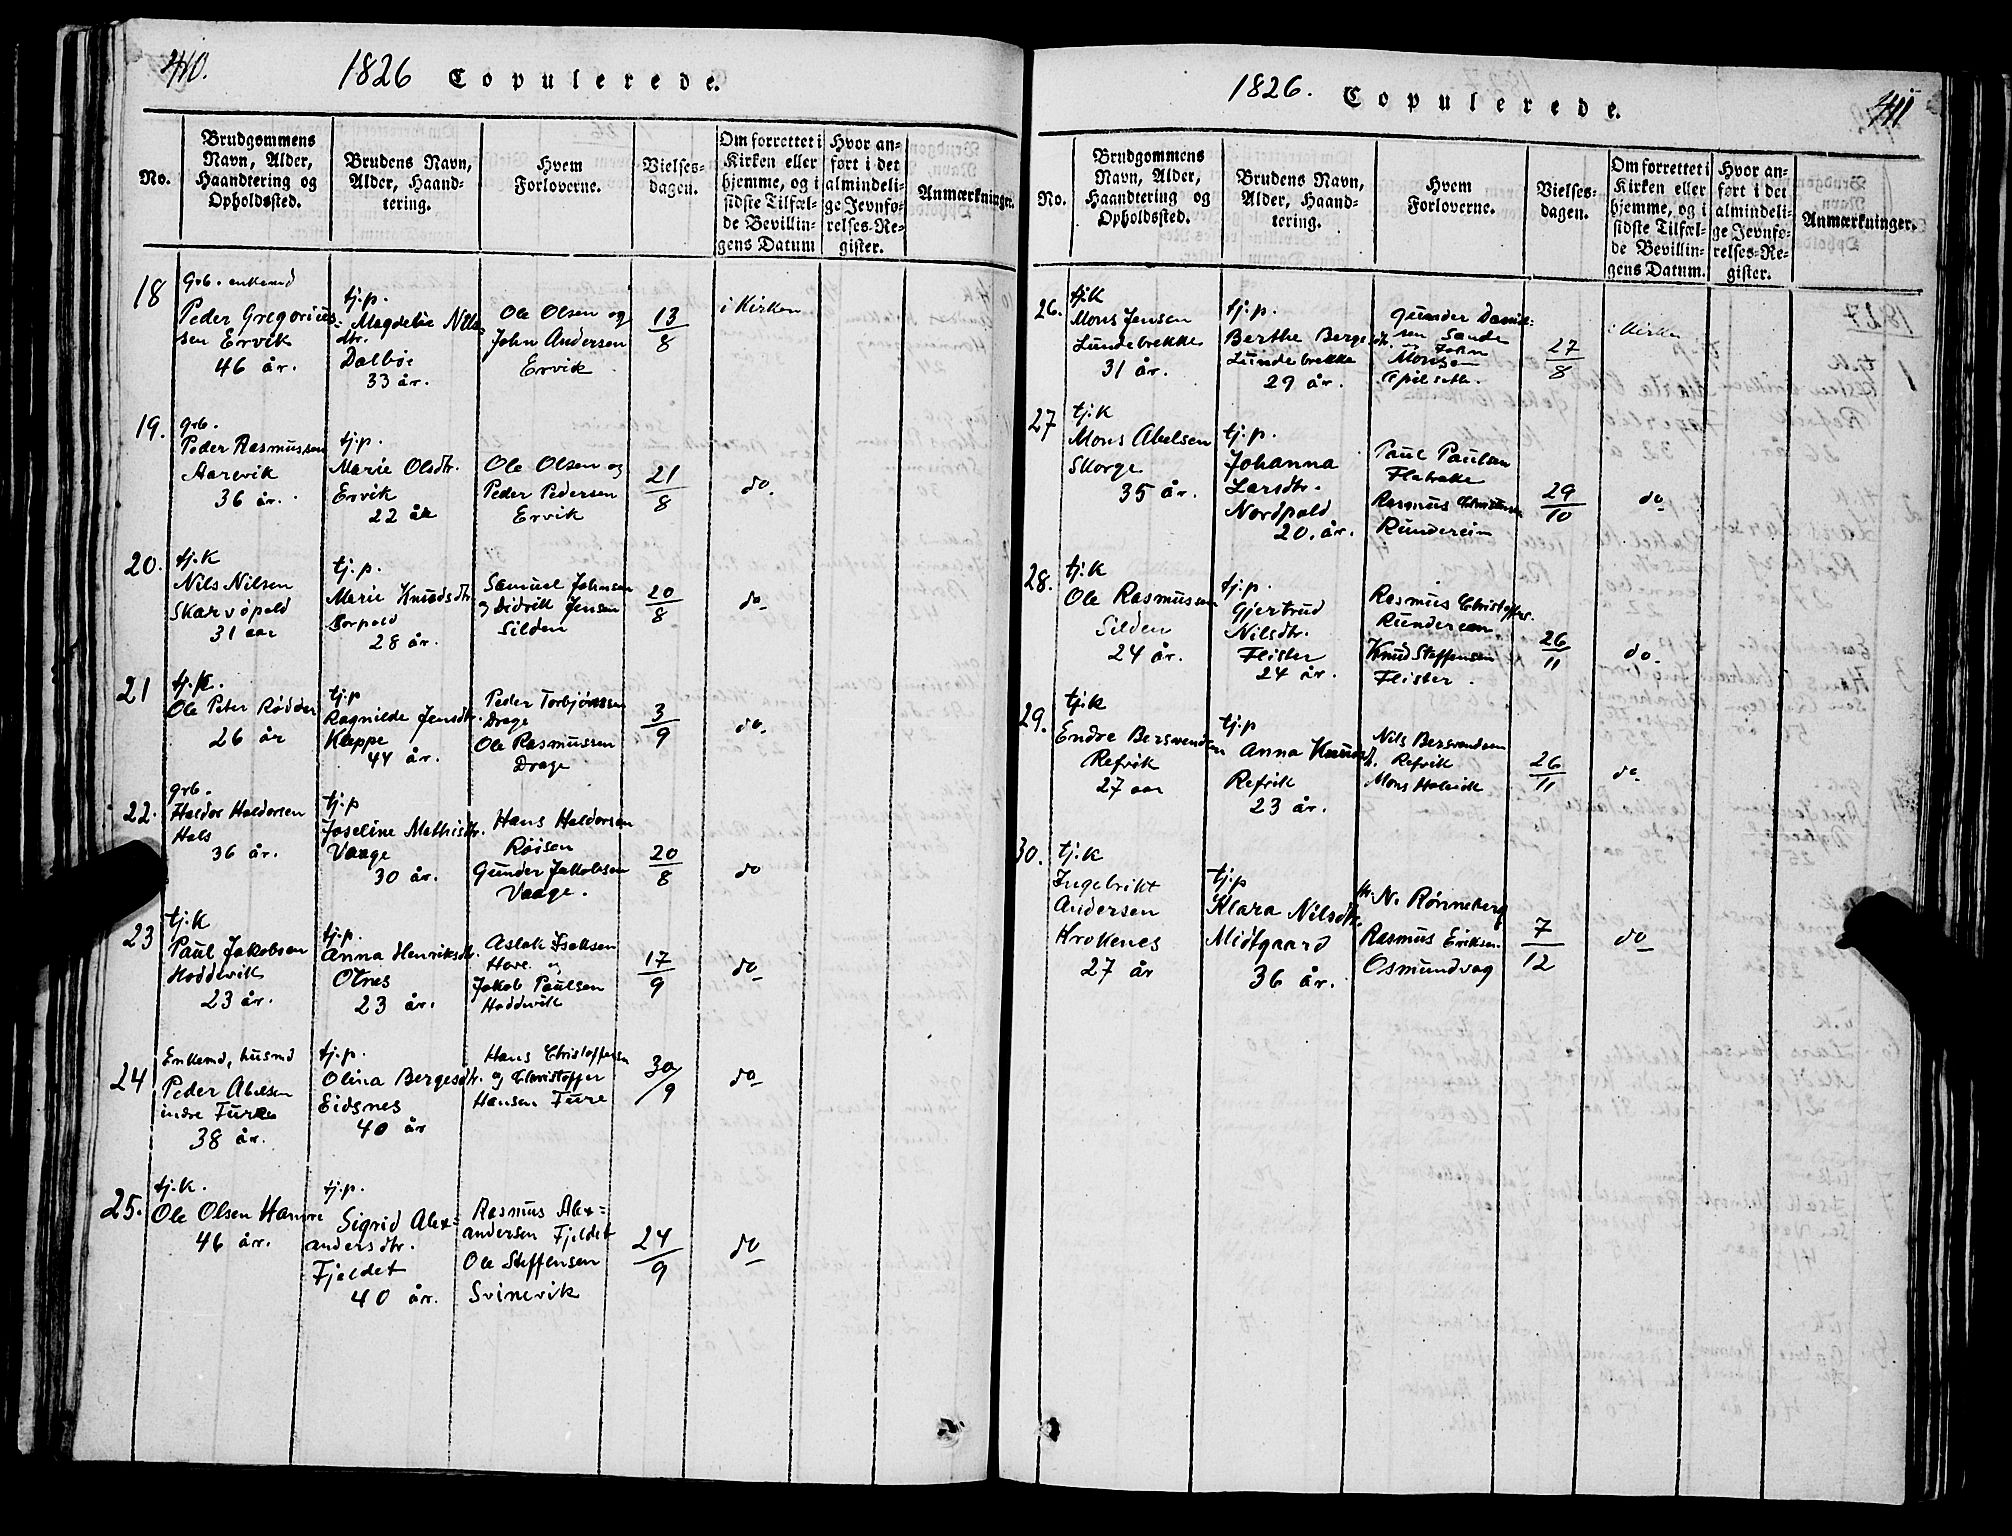 410.
1826 Copulerede.
No.
Brudgommens
Navn, Alder,
Haandtering og
Opholdssted.
Brudens Navn,
Alder, Haand-
tering.
Hvem
Forloverne.
Vielses-
dagen.
Om forrettet i
Kirken eller
hjemme, og i
sidste Tilfæl-
de Bevillin-
gens Datum
Hvor an-
ført i det
almindeli-
ge Jevnfø-
relses-Re-
gister.
Anmærkninger.
18
Grb. enkemd
Peder Gregorius-
sen Ervik
46 år.
tj.p.
Magdeløe Nils
dtr.
Dalbøe
33 år.
Ole Olsen og
John Andersen
Ervik
13/8
i Kirken
19.
grb.
Peder Rasmussen
Aarevik
36 år.
tj.p.
Marie Olsdtr.
Ervik
22 år
Ole Olsen og
Peder Pedersen
Ervik
21/8
do.
20.
tj.k
Nils Nilsen
Skarvøpold
31 aar
tj.p.
Marie Knudsdtr.
Borpold
28 år.
Samuel Johnsen
og Didrik Jensen
Silden
20/8
do.
21
tj.k.
Ole Peter Rødder
26 år
tj.p
Ragnilde Jensdtr.
Kleppe
44 år.
Peder Torbjørnsen
Drage
Ole Rasmussen
Drage
3/9
do.
22.
grb.
Haldor Haldorsen
Hals
36 år.
tj.p
Joseline Mathisdtr.
Vaage
30 år.
Hans Haldorsen
Røisen
Gunder Jakobsen
Vaage.
20/8
do
23
tj.k
Paul Jakobsen
Hoddevik
23 år.
tj.p.
Anna Henriksdtr.
Otnes
23 år.
Aslak Isaksen
Hove og
Jakob Paulsen
Hoddevik
17/9
do
24
Enkemd, husmd
Peder Abelsen
indre Furre
38 år.
tj.p.
Olina Bergesdtr.
Eidsnes
40 år
Hans Christoffersen
og Christoffer
Hansen Fure
30/9
do
25.
tj.k.
Ole Olsen Hamre
46 år.
tj.p.
Sigrid Alex=
andersdtr.
Fjeldet
40 år.
Rasmus Alex=
andersen Fjeldet
Ole Steffensen
Svinevik
24/9
do
411
1826. Copulerede.
No.
Brudgommens
Navn, Alder,
Haandtering og
Opholdssted.
Brudens Navn,
Alder, Haand-
tering.
Hvem
Forloverne.
Vielses-
dagen.
Om forrettet i
Kirken eller
hjemme, og i
sidste Tilfæl-
de Bevillin-
gens Datum.
Hvor an-
ført i det
almindeli-
ge Jevnfø-
relses-Re-
gister.
Anmærkninger.
26.
tj.k
Mons Jensen
Lundebrekke
31 år.
tj.p.
Berthe Berge dtr.
Lundebrekke
29 år.
Gunder Daniel=
sen Sande
John
Monsen
27/8
i Kirken
27
tj.k
Mons Abelsen
Skorge
35 år.
tj.p.
Johanna
Larsdtr.
Nordpold
20. år.
Paul Paulsen
Flatrake
Rasmus Christensen
Rundereim
29/10
do
28.
tj.k
Ole Rasmussen
Silden
24 år.
tj.p.
Gjertrud
Nilsdtr.
Flister
24 år.
Rasmus Christoffers.
Rundereim
Knud Steffensen
Flister.
26/11
do.
29.
tj.k
Endre Bersvendsen
Refvik
27 aar
tj.p
Anna Knuds dtr.
Refvik
23 år.
Nils Bersvendsen
Refvik
Mons Halsvik
26/11
do
30.
tj.k
Ingebrikt
Andersen
Krokenes
27 år
tj.p
Klara Nilsdtr.
Midtgaard
36 år.
hr. N. Rønneberg
Rasmus Eriksen
Osmundvag
7/12
do